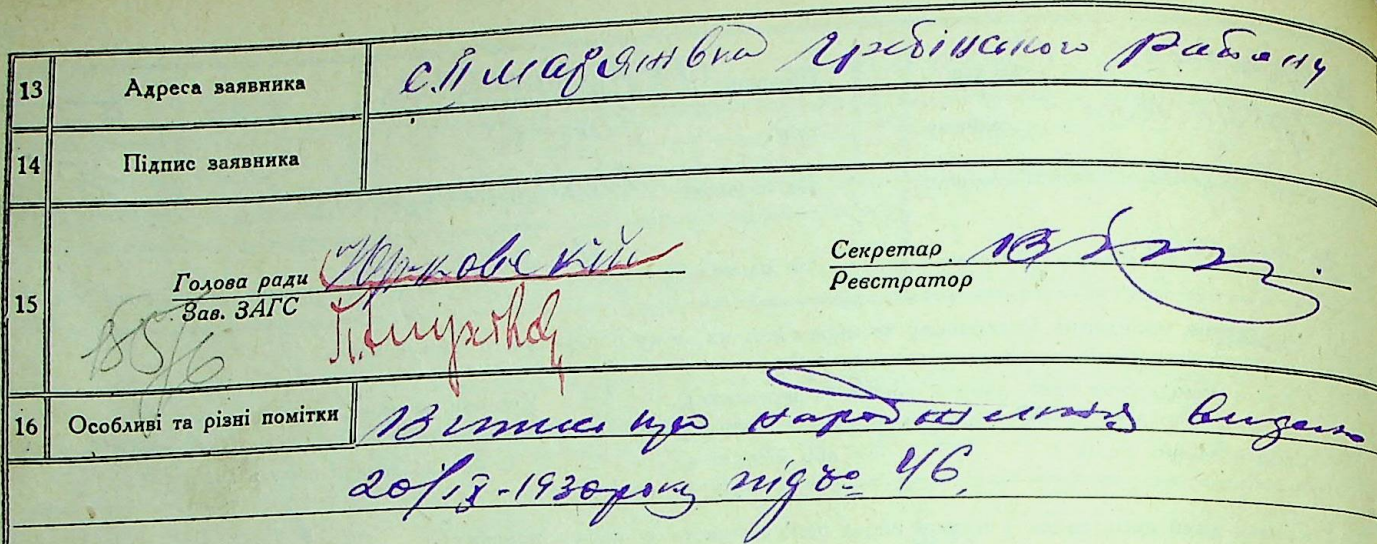 13 Адреса заявника с. П Мар'янівка Гребінського району
14 Підпис заявника
15 Голова ради Юрковскій Секретар
Зав. ЗАГС Реєстратор
16 Особливі та різні помітки Витяг про народження видано
20/IX-1930 року під № 46.